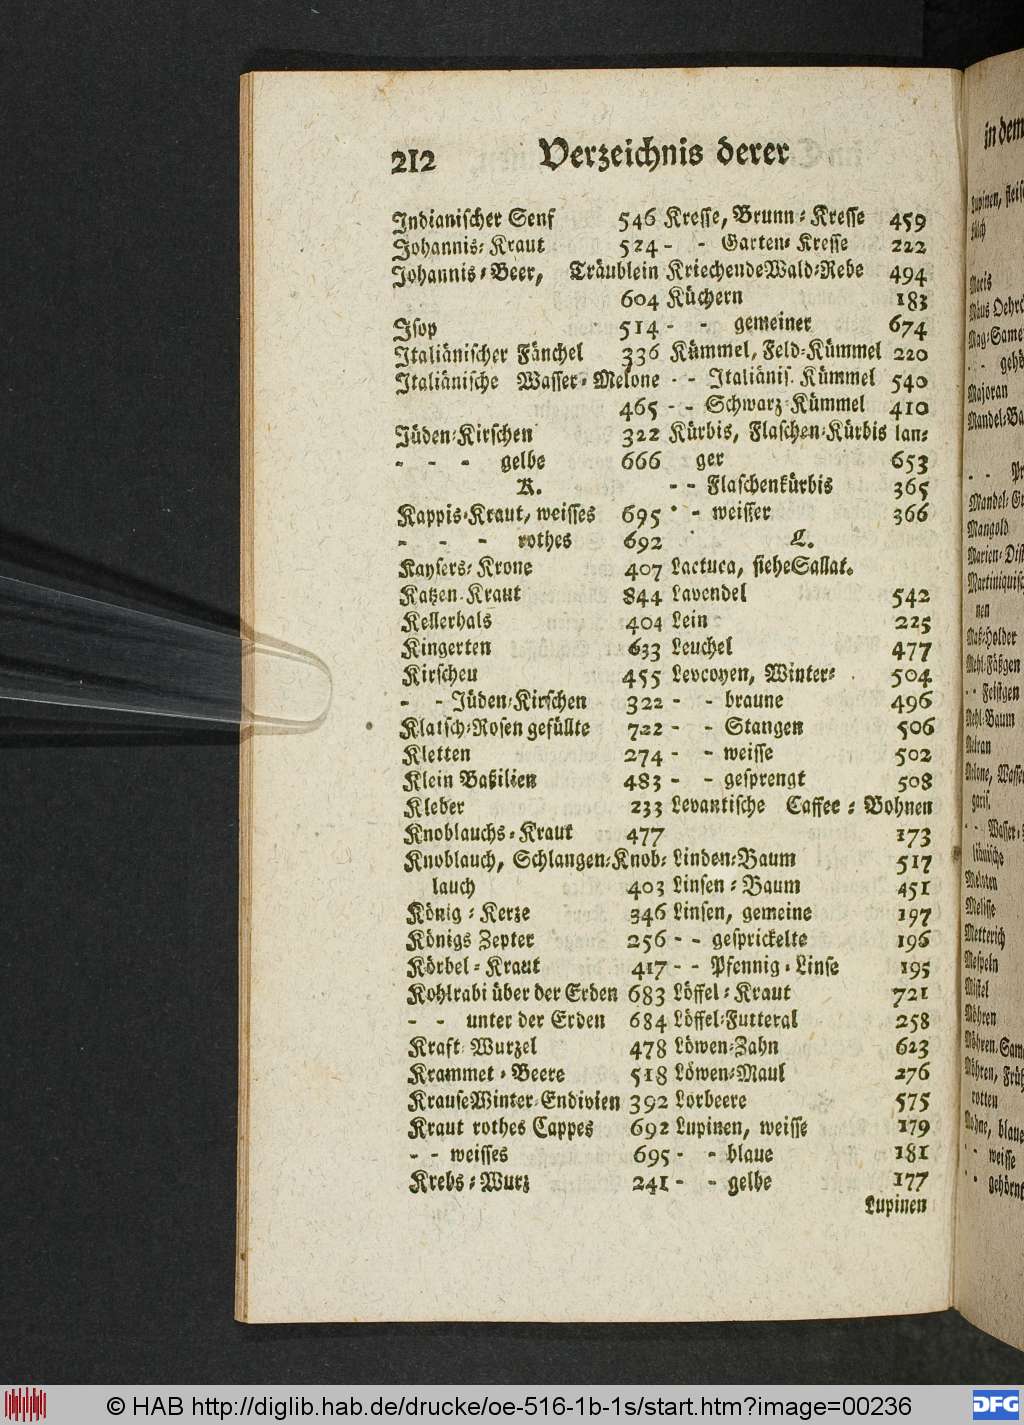 212 Verzeichnis derer
Indianischer Senf 546
Johannis-Kraut 524
Johannis-Beer, Träublein
604
Isop 514
Italiänischer Fänchel 336
Italiänische Wasser-Melone
465
Jüden-Kirschen 322
- - - gelbe 666
K.
Kappis-Kraut, weisses 695
- - - rothes 692
Kaysers-Krone 407
Katzen-Kraut 844
Kellerhals 404
Kingerten 633
Kirschen 455
- - Jüden-Kirschen 322
Klatsch-Rosen gefüllte 722
Kletten 274
Klein Basilien 483
Kleber 233
Knoblauchs-Kraut 477
Knoblauch, Schlangen-Knob-
lauch 403
König-Kerze 346
Königs Zepter 256
Körbel-Kraut 417
Kohlrabi über der Erden 683
- - unter der Erden 684
Kraft-Wurzel 478
Krammet-Beere 518
Krause Winter-Endivien 392
Kraut rothes Cappes 692
- - weisses 695
Krebs-Wurz 241
Kresse, Brunn-Kresse 459
- - Garten-Kresse 222
Kriechende Wald-Rebe 494
Küchern 183
- - gemeiner 674
Kümmel, Feld-Kümmel 220
- - Italiänis. Kümmel 540
- - Schwarz-Kümmel 410
Kürbis, Flaschen-Kürbis lan-
ger 653
- - Flaschenkürbis 365
- - weisser 366
L.
Lactuca, siehe Sallat.
Lavendel 542
Lein 225
Leuchel 477
Levcoyen, Winter- 504
- - braune 496
- - Stangen 506
- - weisse 502
- - gesprengt 508
Levantische Caffee-Bohnen
173
Linden-Baum 517
Linsen-Baum 451
Linsen, gemeine 197
- - gesprickelte 196
- - Pfennig-Linse 195
Löffel-Kraut 721
Löffel-Futteral 258
Löwen-Zahn 623
Löwen-Maul 276
Lorbeere 575
Lupinen, weisse 179
- - blaue 181
- - gelbe 177
Lupinen
in dem
Majoran
Mangold
Melisse
Metterich
Mespeln
Mistel
Möhren
© HAB http://diglib.hab.de/drucke/oe-516-1b-1s/start.htm?image=00236
DFG